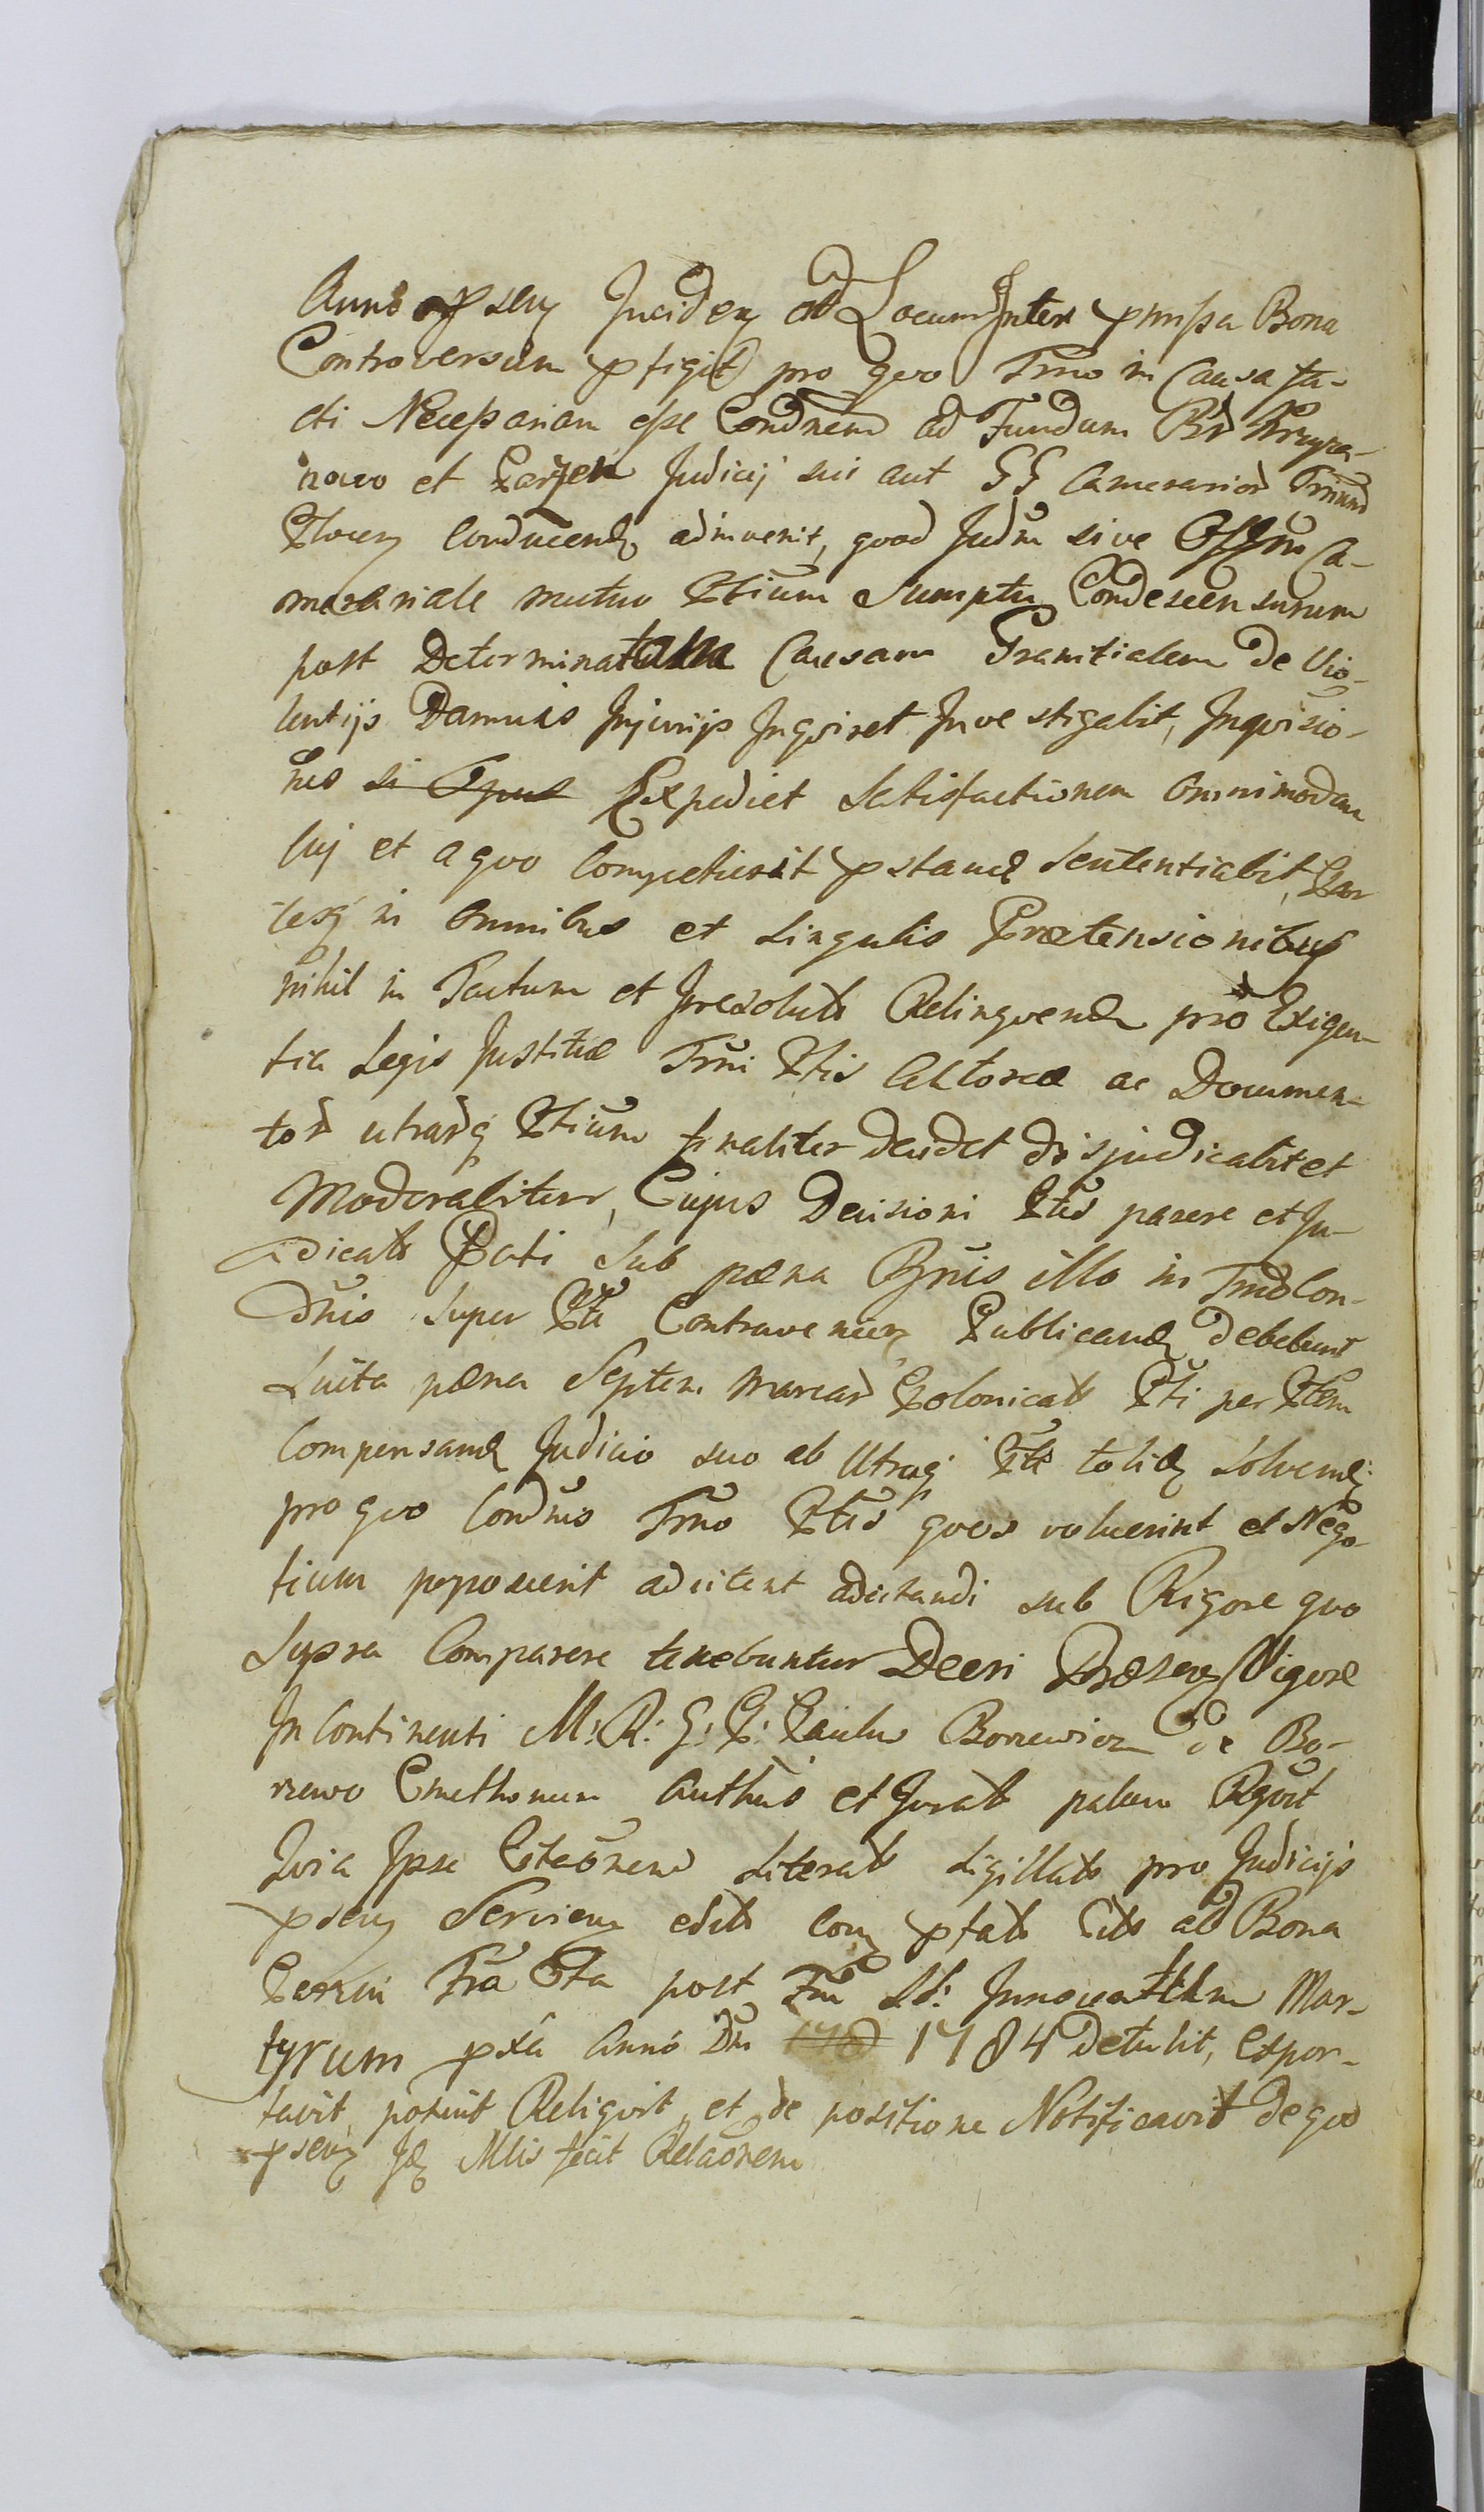 Anno psen Inciden ad Locum Inter pmissa Bona
Controversum pfigit pro qvo Trmo in Causa fa-
cti Necessariam esse Condnem ad Fundum Br
nowo et Judicij sui aut GG Camerarior Trium
Plocen Conducend adinvenit, qvod Judm sive Offm Ca-
merariale mutuo Ptium Sumptu Condescensurum
post Determinatam Causam Granitialem de Vio-
lentijs Damnis Injurijs Inqviret Investigabit, Inqvisio-
nes si Opus Expediet Satisfactionem Omnimodam
Cuj et a qvo Competierit pstand Sententiabit, Par
tesq in Omnibus et Singulis Prætensionibus
nihil in Factum et Irresolutt Relinqvend pro Exigen-
tia Legis Justitiæ Trmi Ptis Actoreæ ac Documen-
tor utrarq Ptium finaliter decidet disjudicabit et
Moderabitur, Cujus Decisioni Ptes parere et Ju-
dicatt Pati Sub pæna Bnis illo in Trmo Con-
dnis Super Pte Contravenien Publicand debebunt
Luita pæna Septem Marcar Polonicatt Pti per Ptem
Compensand Judicio suo ab Utraq Pte totid Solvend:
pro qvo Condnis Trmo Ptes qvos voluerint et Nego-
tium poposcerit adcitent adcitandi sub Rigore qvo
Supra Comparere tenebuntur Decri Præsen Vigore
In Continenti M: R: G: P: Paulus Borzewicz de Bo-
rzewo Cmethonum Authus et Juratt palam Rgvit
Qvia Ipse Citaonem Literatt Sigillatt pro Judicijs
psen Servien editt Con pfatt Citt ad Bona
Fra 6ta post Fm SS: Innocentum Mar-
tyrum pxa Anno Dni 178 1784 detulit, Expor-
tavit posuit Reliqvit, et de positione Notificavit de qvo
psen Id Mlis fecit Relaonem